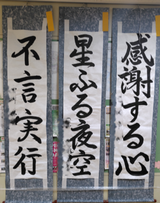 感謝する心
星ふる夜空
不言実行